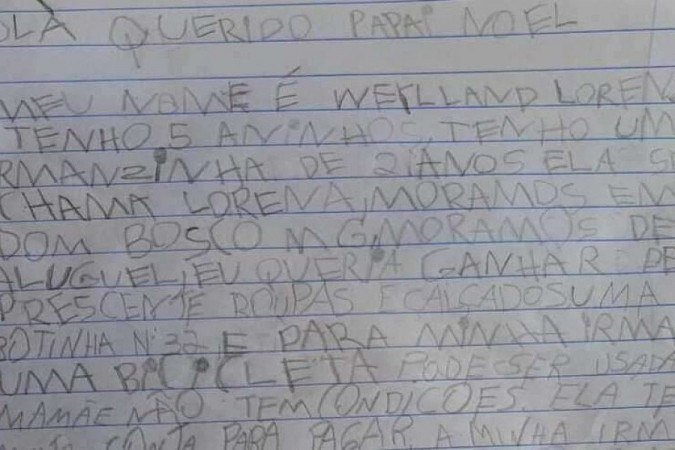 OLÀ QUERIDO PAPAI NOEL
MEU NOME É WELLLAND LOREN
TENHO 5 ANINHOS, TENHO UM
RMANZINHA DE 2 ANOS ELA S
CHAMA LORENA, MORAMOS EM
DOM BOSCO MG, MORAMOS DE
ALUGUEL, EU QUERIA GANHAR DE
PRESCENTE ROUPAS E CALCADOS UMA
BOTINHA N:32 E PARA MINHA IRMA
UMA BICICLETA PODE SER USADA
MAMÃE NÃO TEM CONDICOES. ELA TE
CONTA PARA PAGAR. A MINHA IRM